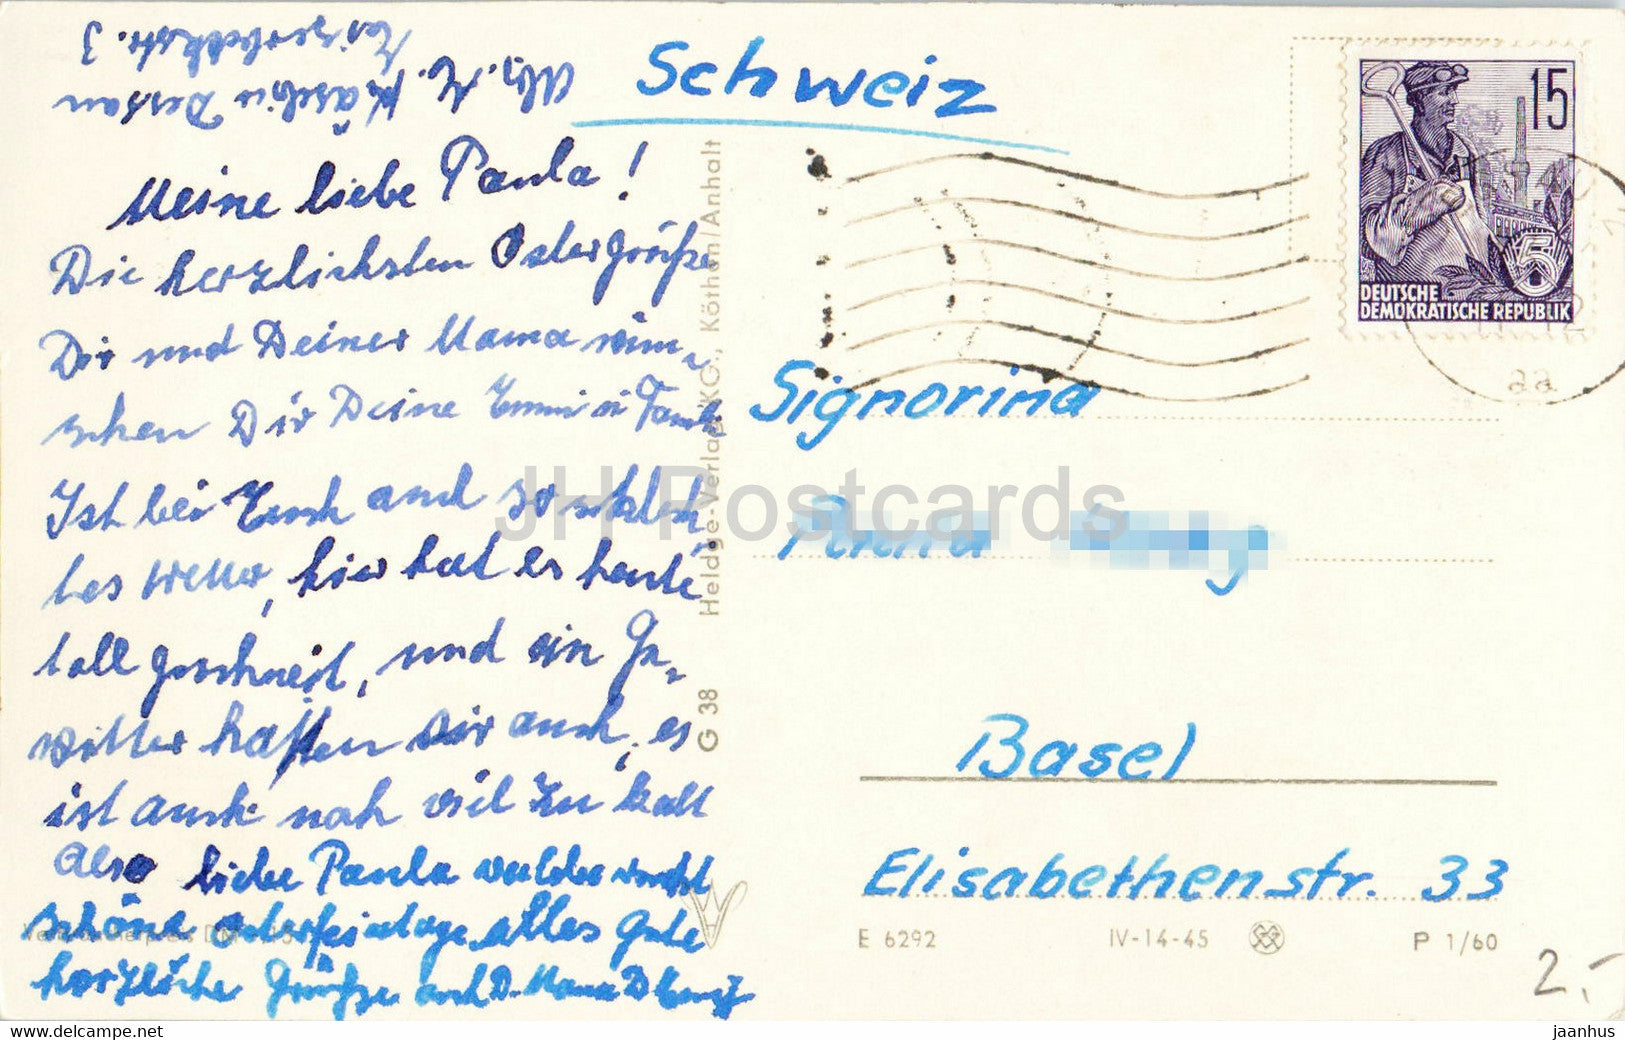 Abs. M. Dessau
str. 3
Schweiz
Meine liebe Paula!
Die herzlichsten Ostergrüße
Dir und Deiner Mama wün-
schen Dir Deine Emmi u
Ist bei Euch auch so
tes Wetter, hier hat es heute
toll geschneit, und ein Ge-
witter hatten wir auch, es
ist auch noch viel zu kalt
Also liebe Paula
schöne Osterfeiertage alles Gute
herzliche Grüße auch D. Mama D
15
DEUTSCHE
DEMOKRATISCHE REPUBLIK
aa
Signorina
Basel
Elisabethenstr. 33
G 38 Heldge-Verlag KG., Köthen/Anhalt
E 6292 IV-14-45 P 1/60
2.-
JH Postcards
www.delcampe.net
jaanhus